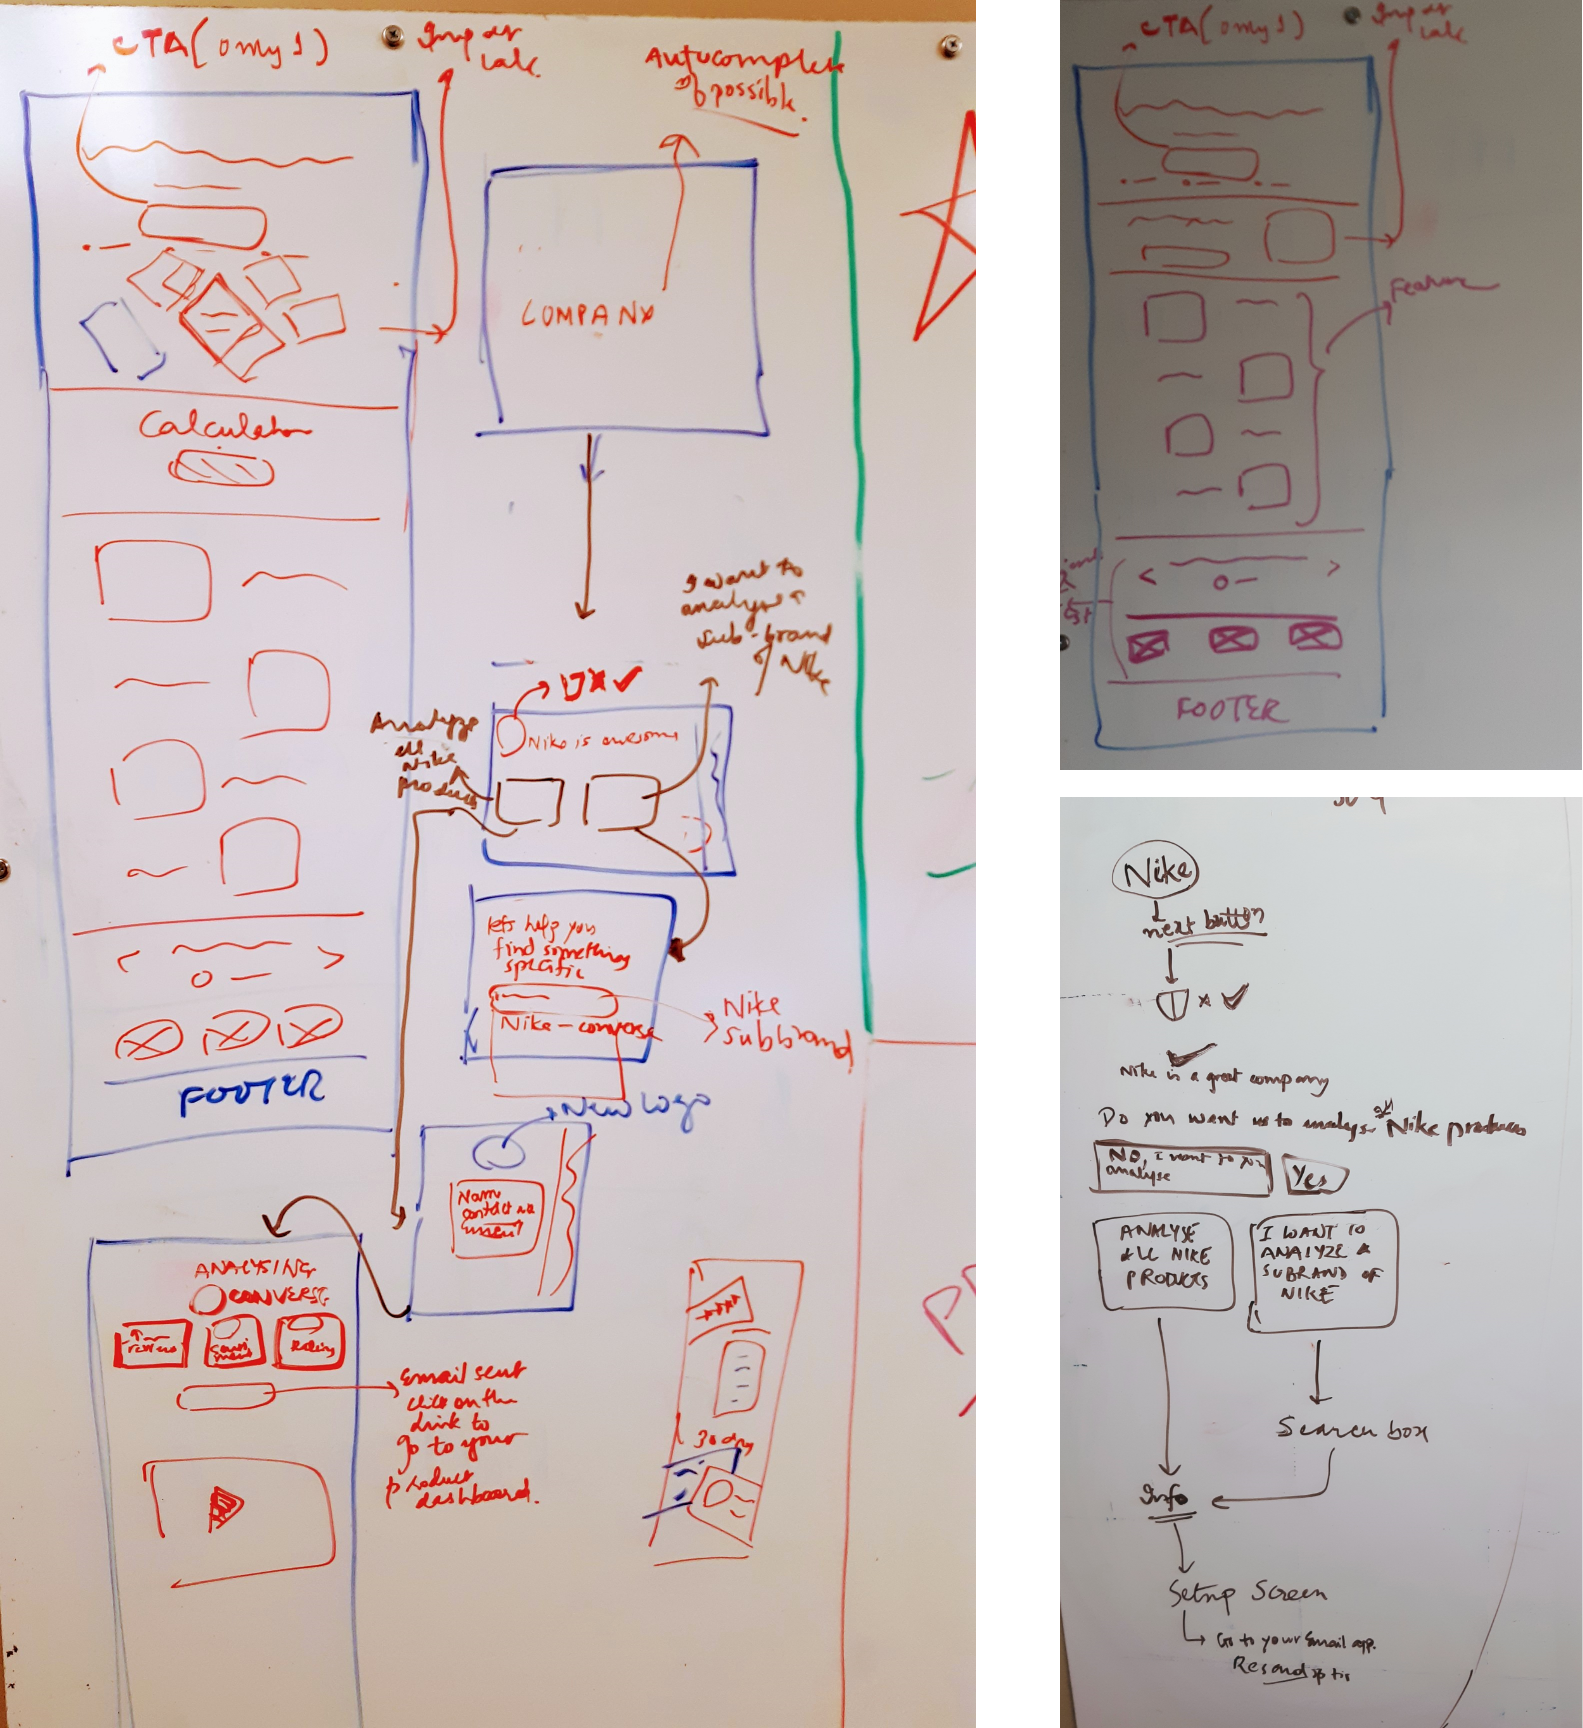 CTA (only 1)
Autocomplete
if possible.
COMPANY
Calculator
I want to
analyse a
sub-brand
of Nike
Analyze
all
Nike
products
Nike is awesome
lets help you
find something
specific
Nike - converse
Nike
subbrand
New logo
FOOTER
Name
contact no
ANALYSING
CONVERSE
reviews
Rating
Email sent
click on the
link to
go to your
product
dashboard.
30 day
CTA (only 1)
Feature
FOOTER
Nike
next button
Nike is a great company
Do you want us to analyse all Nike products
NO, I want to
analyse
Yes
ANALYSE
ALL NIKE
PRODUCTS
I WANT TO
ANALYZE A
SUBRAND OF
NIKE
Search box
Info
Setup Screen
Go to your Email app.
Resend